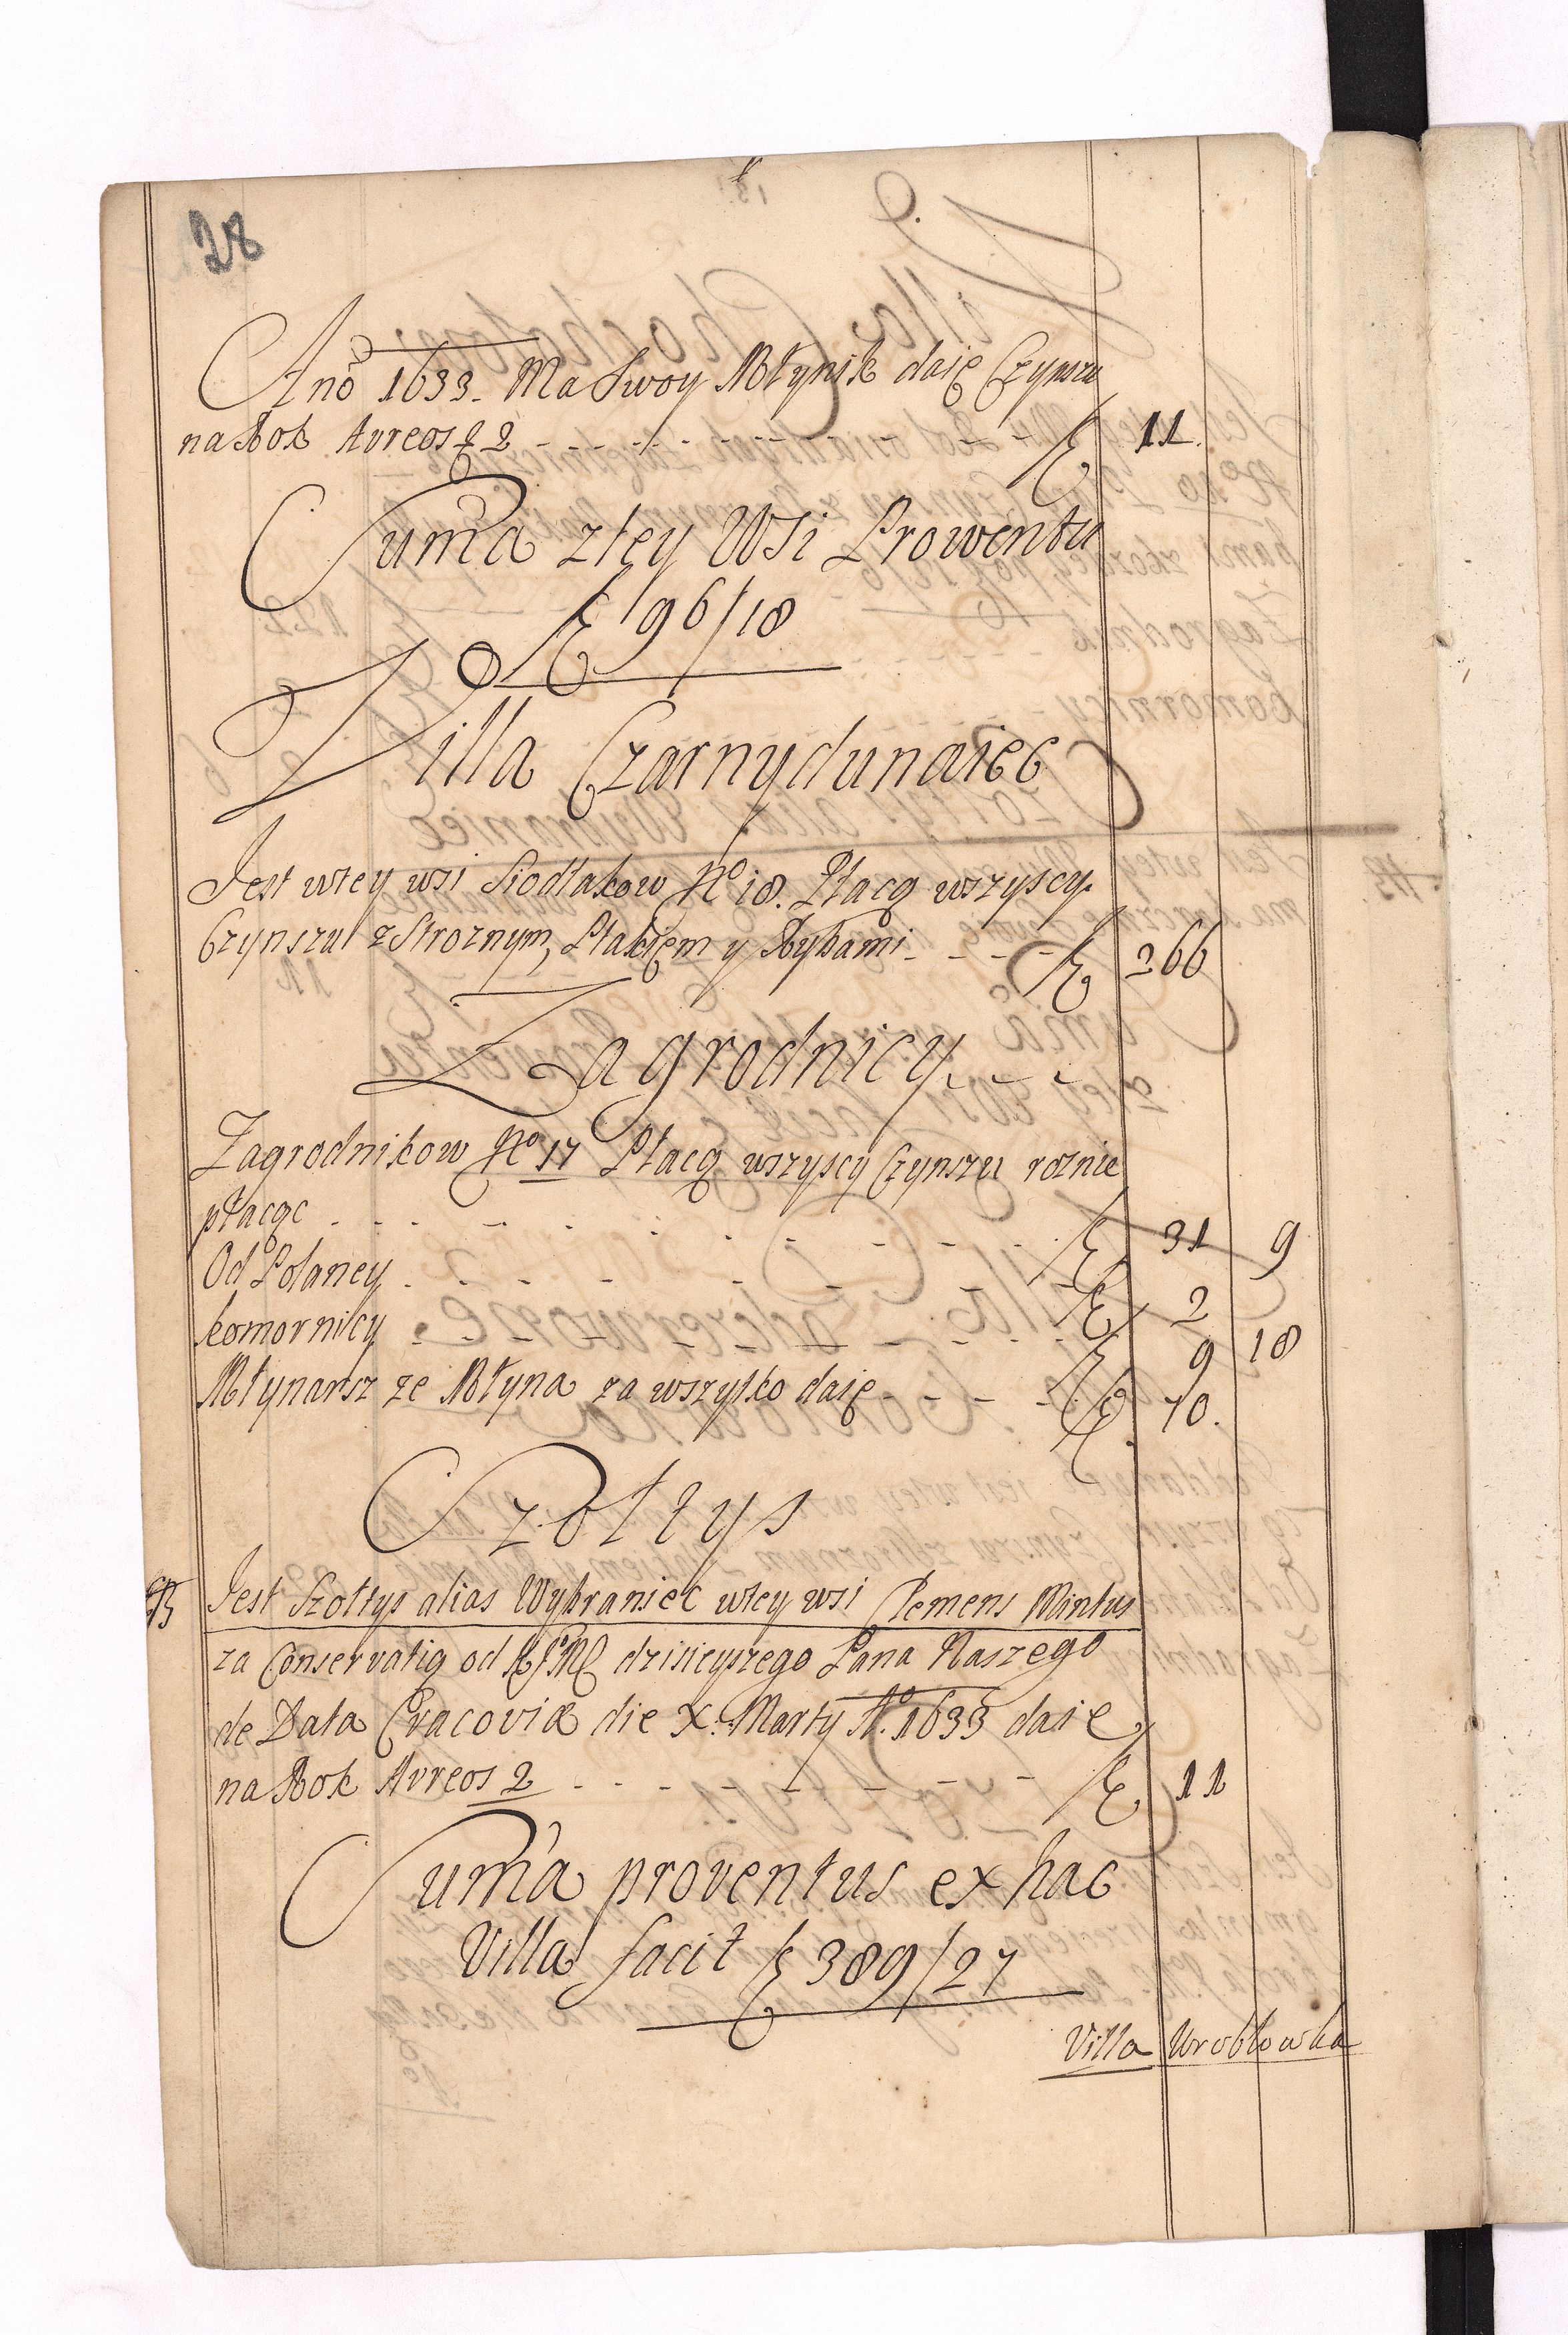 28
Ano 1633. Ma Swoy Młynik daię Czynszu
na Rok Aureos f 2 - - - - f 11.
Suma z tey Wsi Prowentu
f 96/18
Villa Czarnydunaiec
Jest wtey wsi Siodłakow No 18. Płacą wszyscy
Czynszu z Stroznym, Ptakięm y Rybami - - - - f 266
Zagrodnicy
Zagrodnikow No 17 Płacą wszyscy Czynszu roznie
płacąc - - - - f 31 9
Od Polaney - - - - f 2
Komornicy - - - - f 9 18
Młynarsz ze Młyna za wszytko daię - - - - f 70.
Szołtys
Jest Szołtys alias Wybraniec wtey wsi Clemens Mintus
za Conservatią od KJM dzisieyszego Pana Naszego
de Data Cracoviæ die X. Marty Ao. 1633 daie
na Rok Aureos 2 - - - - f 11
Suma proventus ex hac
Villa facit f 389/27
Villa Wroblowka